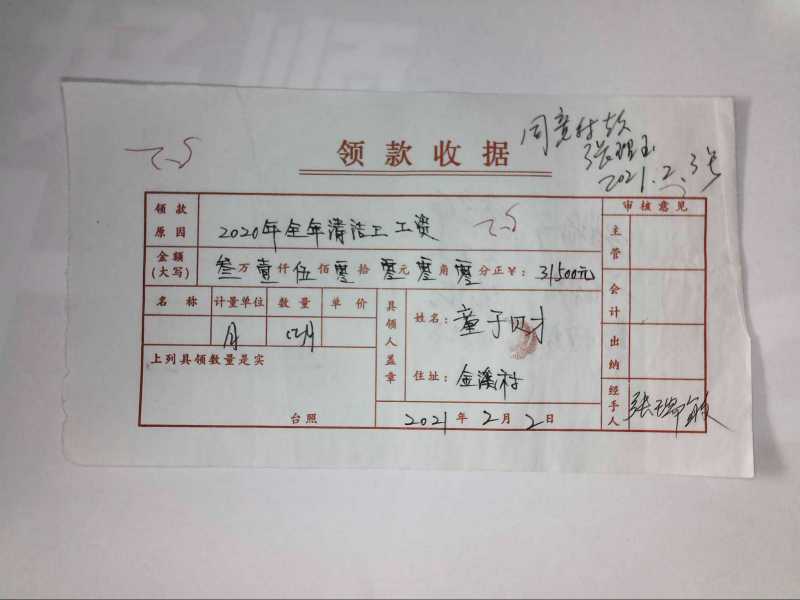 同意付款
2021.2.3号
领款收据
领款原因 2020年全年清洁工工资
审核意见
金额(大写) 叁万壹仟伍佰零拾零元零角零分正¥:31500元
主管
会计
出纳
经手人
名称 计量单位 数量 单价
月 12月
上列具领数量是实
台照
具领人盖章
姓名:童子财
住址:金溪村
2021年2月2日